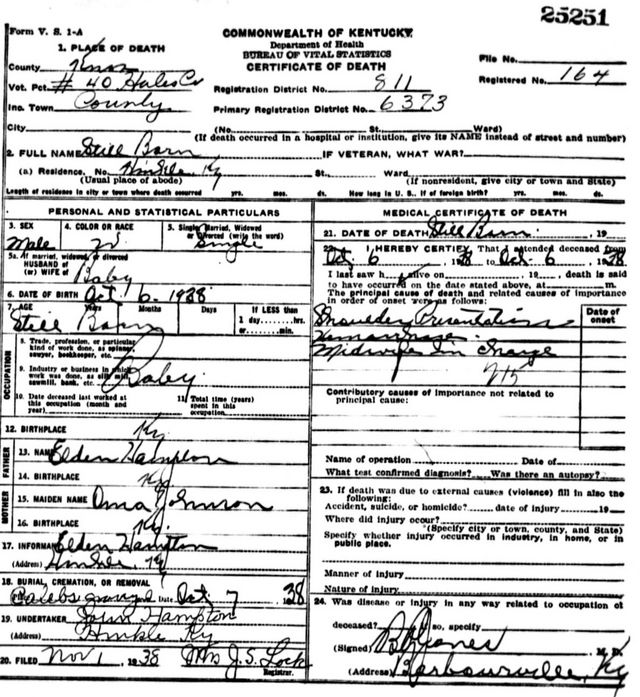 25251
Form V. S. 1-A
COMMONWEALTH OF KENTUCKY
Department of Health
BUREAU OF VITAL STATISTICS
CERTIFICATE OF DEATH
1. PLACE OF DEATH
County Knox
Vot. Pct. # 40 Hales Cr
Inc. Town County
City
Registration District No. 811
Primary Registration District No. 6373
File No.
Registered No. 164
(No. St. Ward)
(If death occurred in a hospital or institution, give its NAME instead of street and number)
2. FULL NAME Still Born IF VETERAN, WHAT WAR?
(a) Residence. No. Hinkle, Ky St., Ward
(Usual place of abode) (If nonresident, give city or town and State)
Length of residence in city or town where death occurred yrs. mos. ds. How long in U. S., if of foreign birth? yrs. mos. ds.
PERSONAL AND STATISTICAL PARTICULARS
3. SEX
Male
4. COLOR OR RACE
W
5. Single, Married, Widowed
or Divorced (write the word)
Single
5a. If married, widowed, or divorced
HUSBAND of
(or) WIFE of Baby
6. DATE OF BIRTH Oct 6 1938
7. AGE Years Months Days If LESS than
1 day,....hrs.
or....min.
Still Born
OCCUPATION
8. Trade, profession, or particular
kind of work done, as spinner,
sawyer, bookkeeper, etc.
9. Industry or business in which
work was done, as silk mill,
sawmill, bank, etc. Baby
10. Date deceased last worked at
this occupation (month and
year)
11. Total time (years)
spent in this
occupation
12. BIRTHPLACE Ky.
FATHER
13. NAME Elden Hampton
14. BIRTHPLACE Ky
MOTHER
15. MAIDEN NAME Oma Johnson
16. BIRTHPLACE Ky.
17. INFORMANT Elden Hampton
(Address) Hinkle, Ky
18. BURIAL, CREMATION, OR REMOVAL
Place Date Oct 7 38
19. UNDERTAKER John Hampton
(Address) Hinkle Ky
20. FILED Nov 1 1938 Mrs J. S. Lock
Registrar.
MEDICAL CERTIFICATE OF DEATH
21. DATE OF DEATH Still Born 19
22. I HEREBY CERTIFY, That I attended deceased from
Oct. 6 1938 to Oct. 6 1938
I last saw h alive on 19 death is said
to have occurred on the date stated above, at m.
The principal cause of death and related causes of importance
in order of onset were as follows:
Date of
onset
Shoulder Presentation
Midwife in Charge
Contributory causes of importance not related to
principal cause:
Name of operation Date of
What test confirmed diagnosis? Was there an autopsy?
23. If death was due to external causes (violence) fill in also the
following:
Accident, suicide, or homicide? date of injury 19
Where did injury occur?
(Specify city or town, county, and State)
Specify whether injury occurred in industry, in home, or in
public place.
Manner of injury
Nature of injury
24. Was disease or injury in any way related to occupation of
deceased? If so, specify
(Signed) Jones M. D.
(Address) Barbourville, Ky